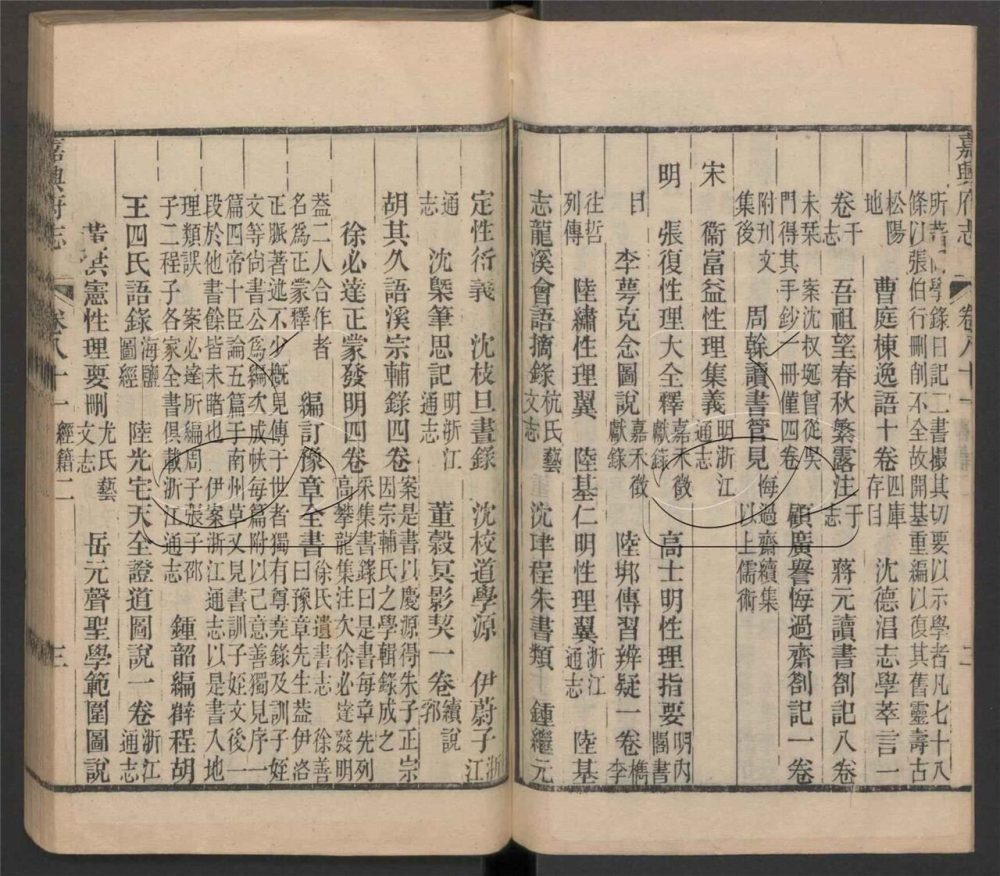 嘉興府志 卷八十一
學錄日記二書撮其切要以示學者凡七十八
條以張伯行刪削不全故開基重編以復其舊靈壽古
松陽 曹庭棟逸語十卷四庫存目 沈德淐志學萃言一
卷于志 吾祖望春秋繁露注于志 蔣元讀書劄記八卷
未栞 案沈权埏曾從吳門得其手鈔一冊僅四卷 顧廣譽悔過齋劄記一卷
附刊文集後 周榦讀書管見悔過齋續集 以上儒術
宋 衞富益性理集義明浙江通志
明 張復性理大全釋嘉禾徵獻錄 高士明性理指要明內閣書
目 李蕚克念圖說嘉禾徵獻錄 陸埛傳習辨疑一卷檇李
往哲列傳 陸繡性理翼 陸基仁明性理翼浙江通志 陸基
志龍溪會語摘錄杭氏藝文志 沈珒程朱書類 鍾繼元
定性衍義 沈枝旦晝錄 沈校道學源 伊蔚子浙江
通志 沈槩筆思記明浙江通志 董穀冥影契一卷續說郛
胡其久語溪宗輔錄四卷案是書以慶源得朱子正宗因宗輔氏之學輯錄成之
徐必達正蒙發明四卷采集書錄曰是書每章先列高攀龍集注次徐必達發明
葢二人合作者名爲正蒙釋 編訂豫章全書徐氏遺書志 徐善曰豫章先生葢伊洛
正脈著述不少槪見傳于世者獨有尊堯錄及訓子姪
文等尙書公爲編次成帙每篇附以己意善獨見序一
篇四帝十臣論五篇于南州草又見書訓子姪文後一
段於他書餘皆未睹也 伊案浙江通志以是書入地
理類誤 案必達所編周子張子邵子二程子各家全書俱載浙江通志 鍾韶編辥程胡
王四氏語錄海鹽圖經 陸光宅天全證道圖說一卷浙江通志
洪憲性理要刪尤氏藝文志 岳元聲聖學範圍圖說
嘉興府志 卷八十一 經籍二 三